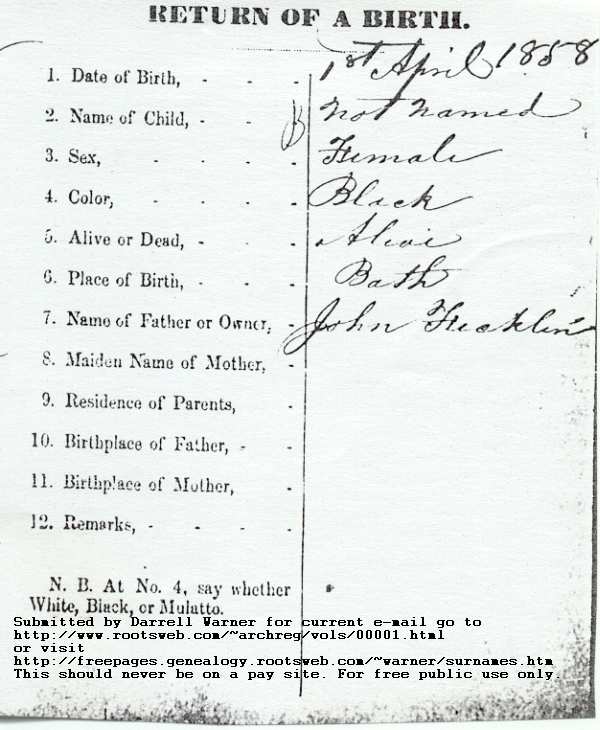 RETURN OF A BIRTH.
1. Date of Birth, - - - 1st April 1858
2. Name of Child, - - Not Named
3. Sex, - - - - Female
4. Color, - - - - Black
5. Alive or Dead, - - - Alive
6. Place of Birth, - - - Bath
7. Name of Father or Owner, - John Ficklin
8. Maiden Name of Mother, -
9. Residence of Parents, -
10. Birthplace of Father, - -
11. Birthplace of Mother, -
12. Remarks, - - - -
N. B. At No. 4, say whether
White, Black, or Mulatto.
Submitted by Darrell Warner for current e-mail go to
http://www.rootsweb.com/~archreg/vols/00001.html
or visit
http://freepages.genealogy.rootsweb.com/~warner/surnames.htm
This should never be on a pay site. For free public use only.